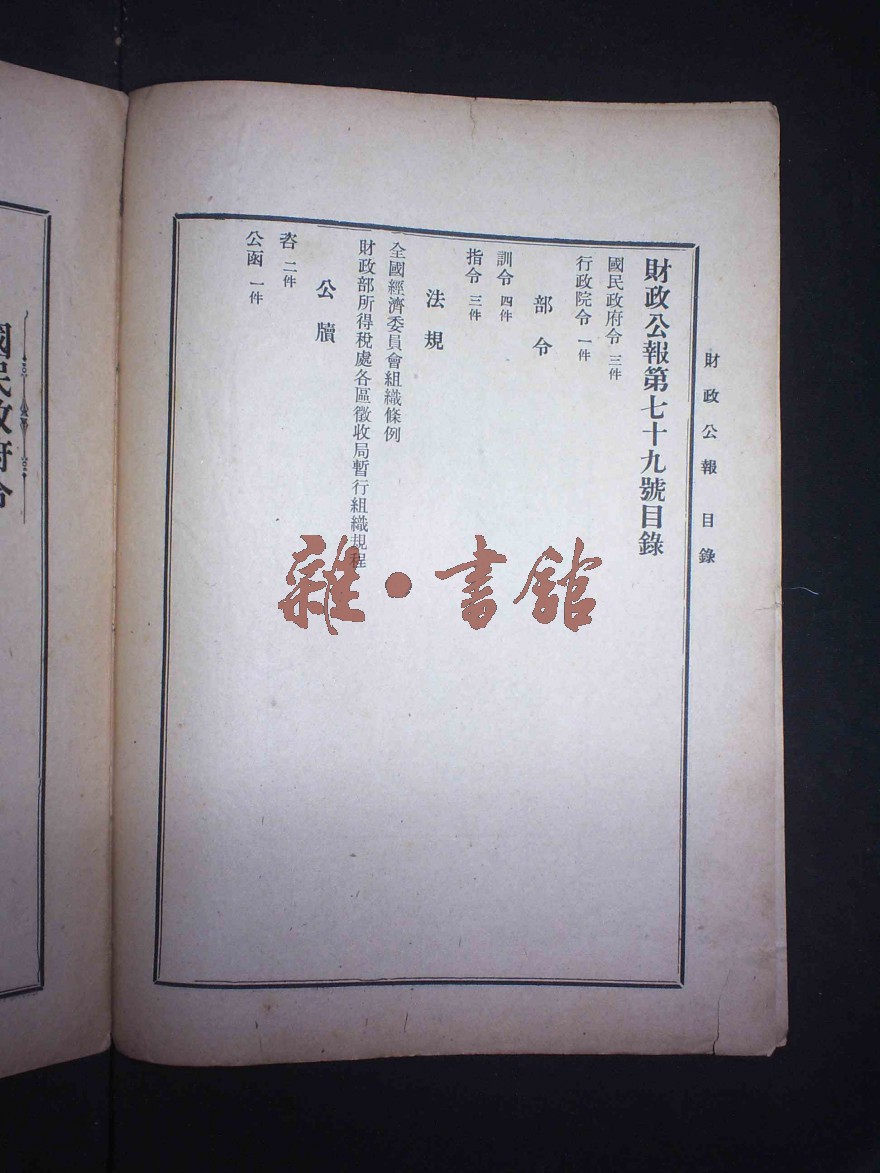 財政公報 目錄
財政公報第七十九號目錄
國民政府令 三件
行政院令 一件
部令
訓令 四件
指令 三件
法規
全國經濟委員會組織條例
財政部所得稅處各區徵收局暫行組織規程
公牘
咨 二件
公函 一件
國民政府令
雜·書館